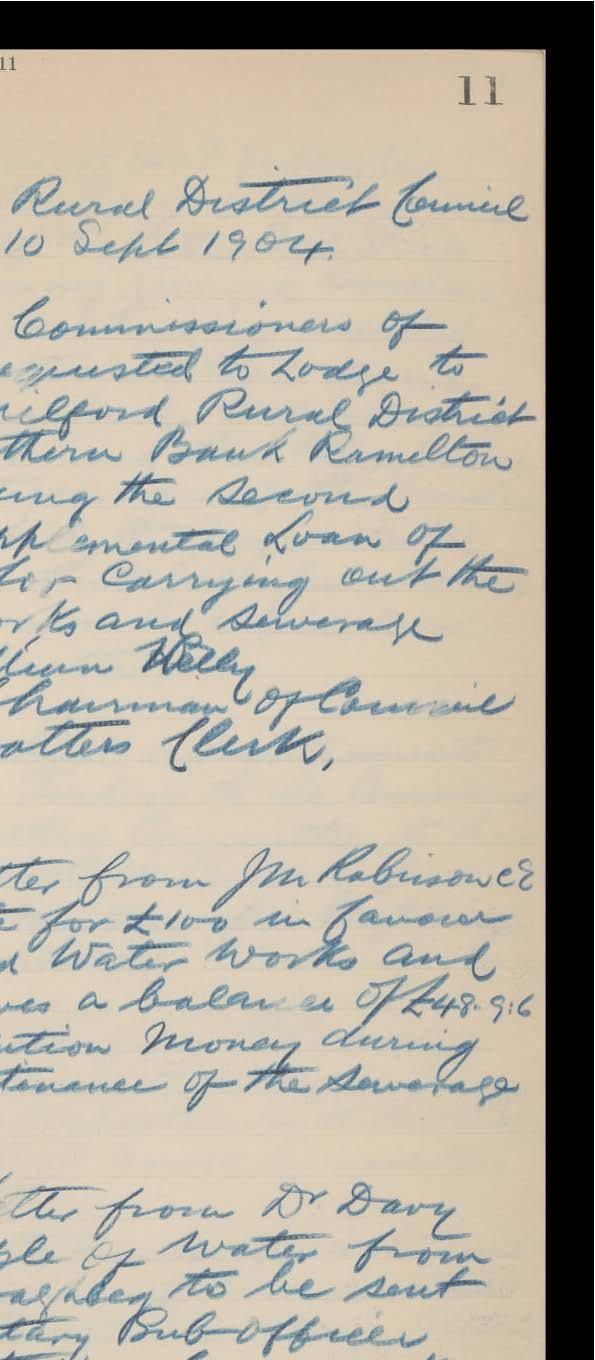 11
11
Rural District Council
10 Sept 1904.
Commissioners of
equested to Lodge to
ilford Rural District
thern Bank Ramelton
ing the Second
pplemental Loan of
for Carrying out the
orks and Sewerage
lliam Kelly
Chairman of Council
atters Clerk,
tter from Jm Robinson CE
for £100 in favour
d Water Works and
ves a balance of £48.9:6
ntion Money during
tenance of the Sewerage
etter from Dr Davy
ple of Water from
to be sent
tary Sub-officer